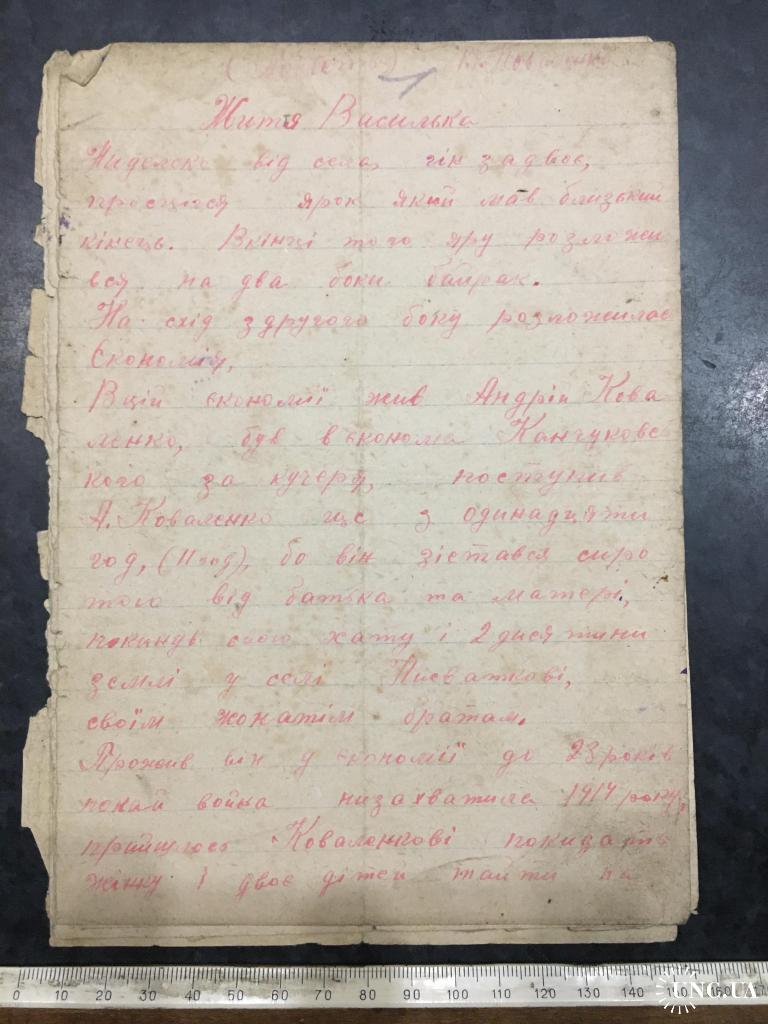 Життя Василька
від села, гін задвоє,
ярок який мав близький
кінець. Вкінці того яру розложи
вся на два боки байрак.
На схід здругого боку розложилас
Єкономія,
Вцій економії жив Андрій Кова
ленко, був векономa Канчуковс
кого за кучеру, поступив
А. Коваленко ще з одинадцяти
год, (11 год), бо він зістався сиро
тою від батька та матері,
покинув свою хату і 2 дисятини
землі у селі
своїм жонатім братам.
Прожив він у економії до 23 років
покий война низахватила 1914 року,
прийшлось Коваленкові покидать
жінку і двоє дітей тайти на
0 10 20 30 40 50 60 70 80 90 100 110 120 130 140 150 160
UNC.UA